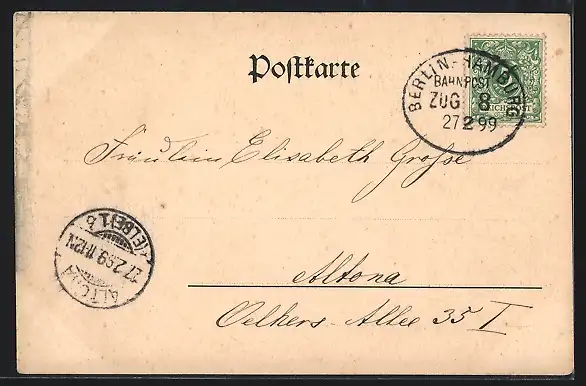 Postkarte
BERLIN-HAMBURG
BAHNPOST
ZUG 8
27 2 99
REICHSPOST
Fräulein Elisabeth Grosse
Altona
Oelkers-Allee 35 I
ALTONA
27.2.99 11-12N
(ELBE) 1 b